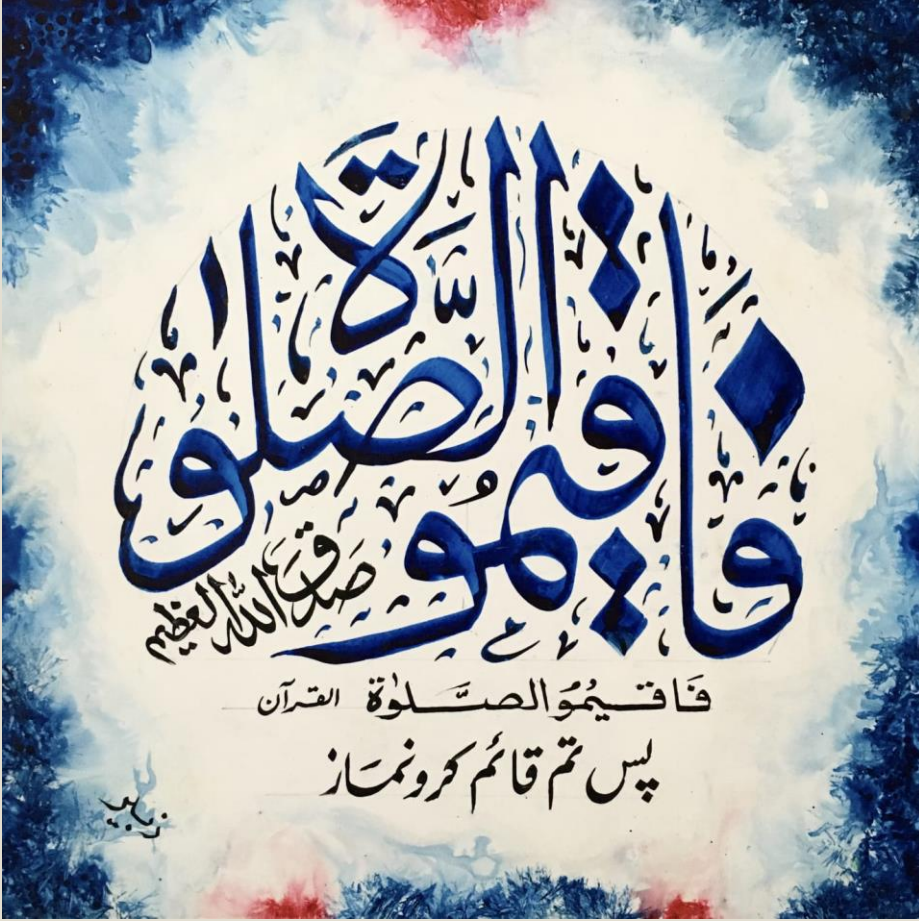 فاقیمُو الصّلوة
صدق اللہ العظیم
فَاقیمُوُالصَّلوٰة القرآن
پس تم قائم کرو نماز